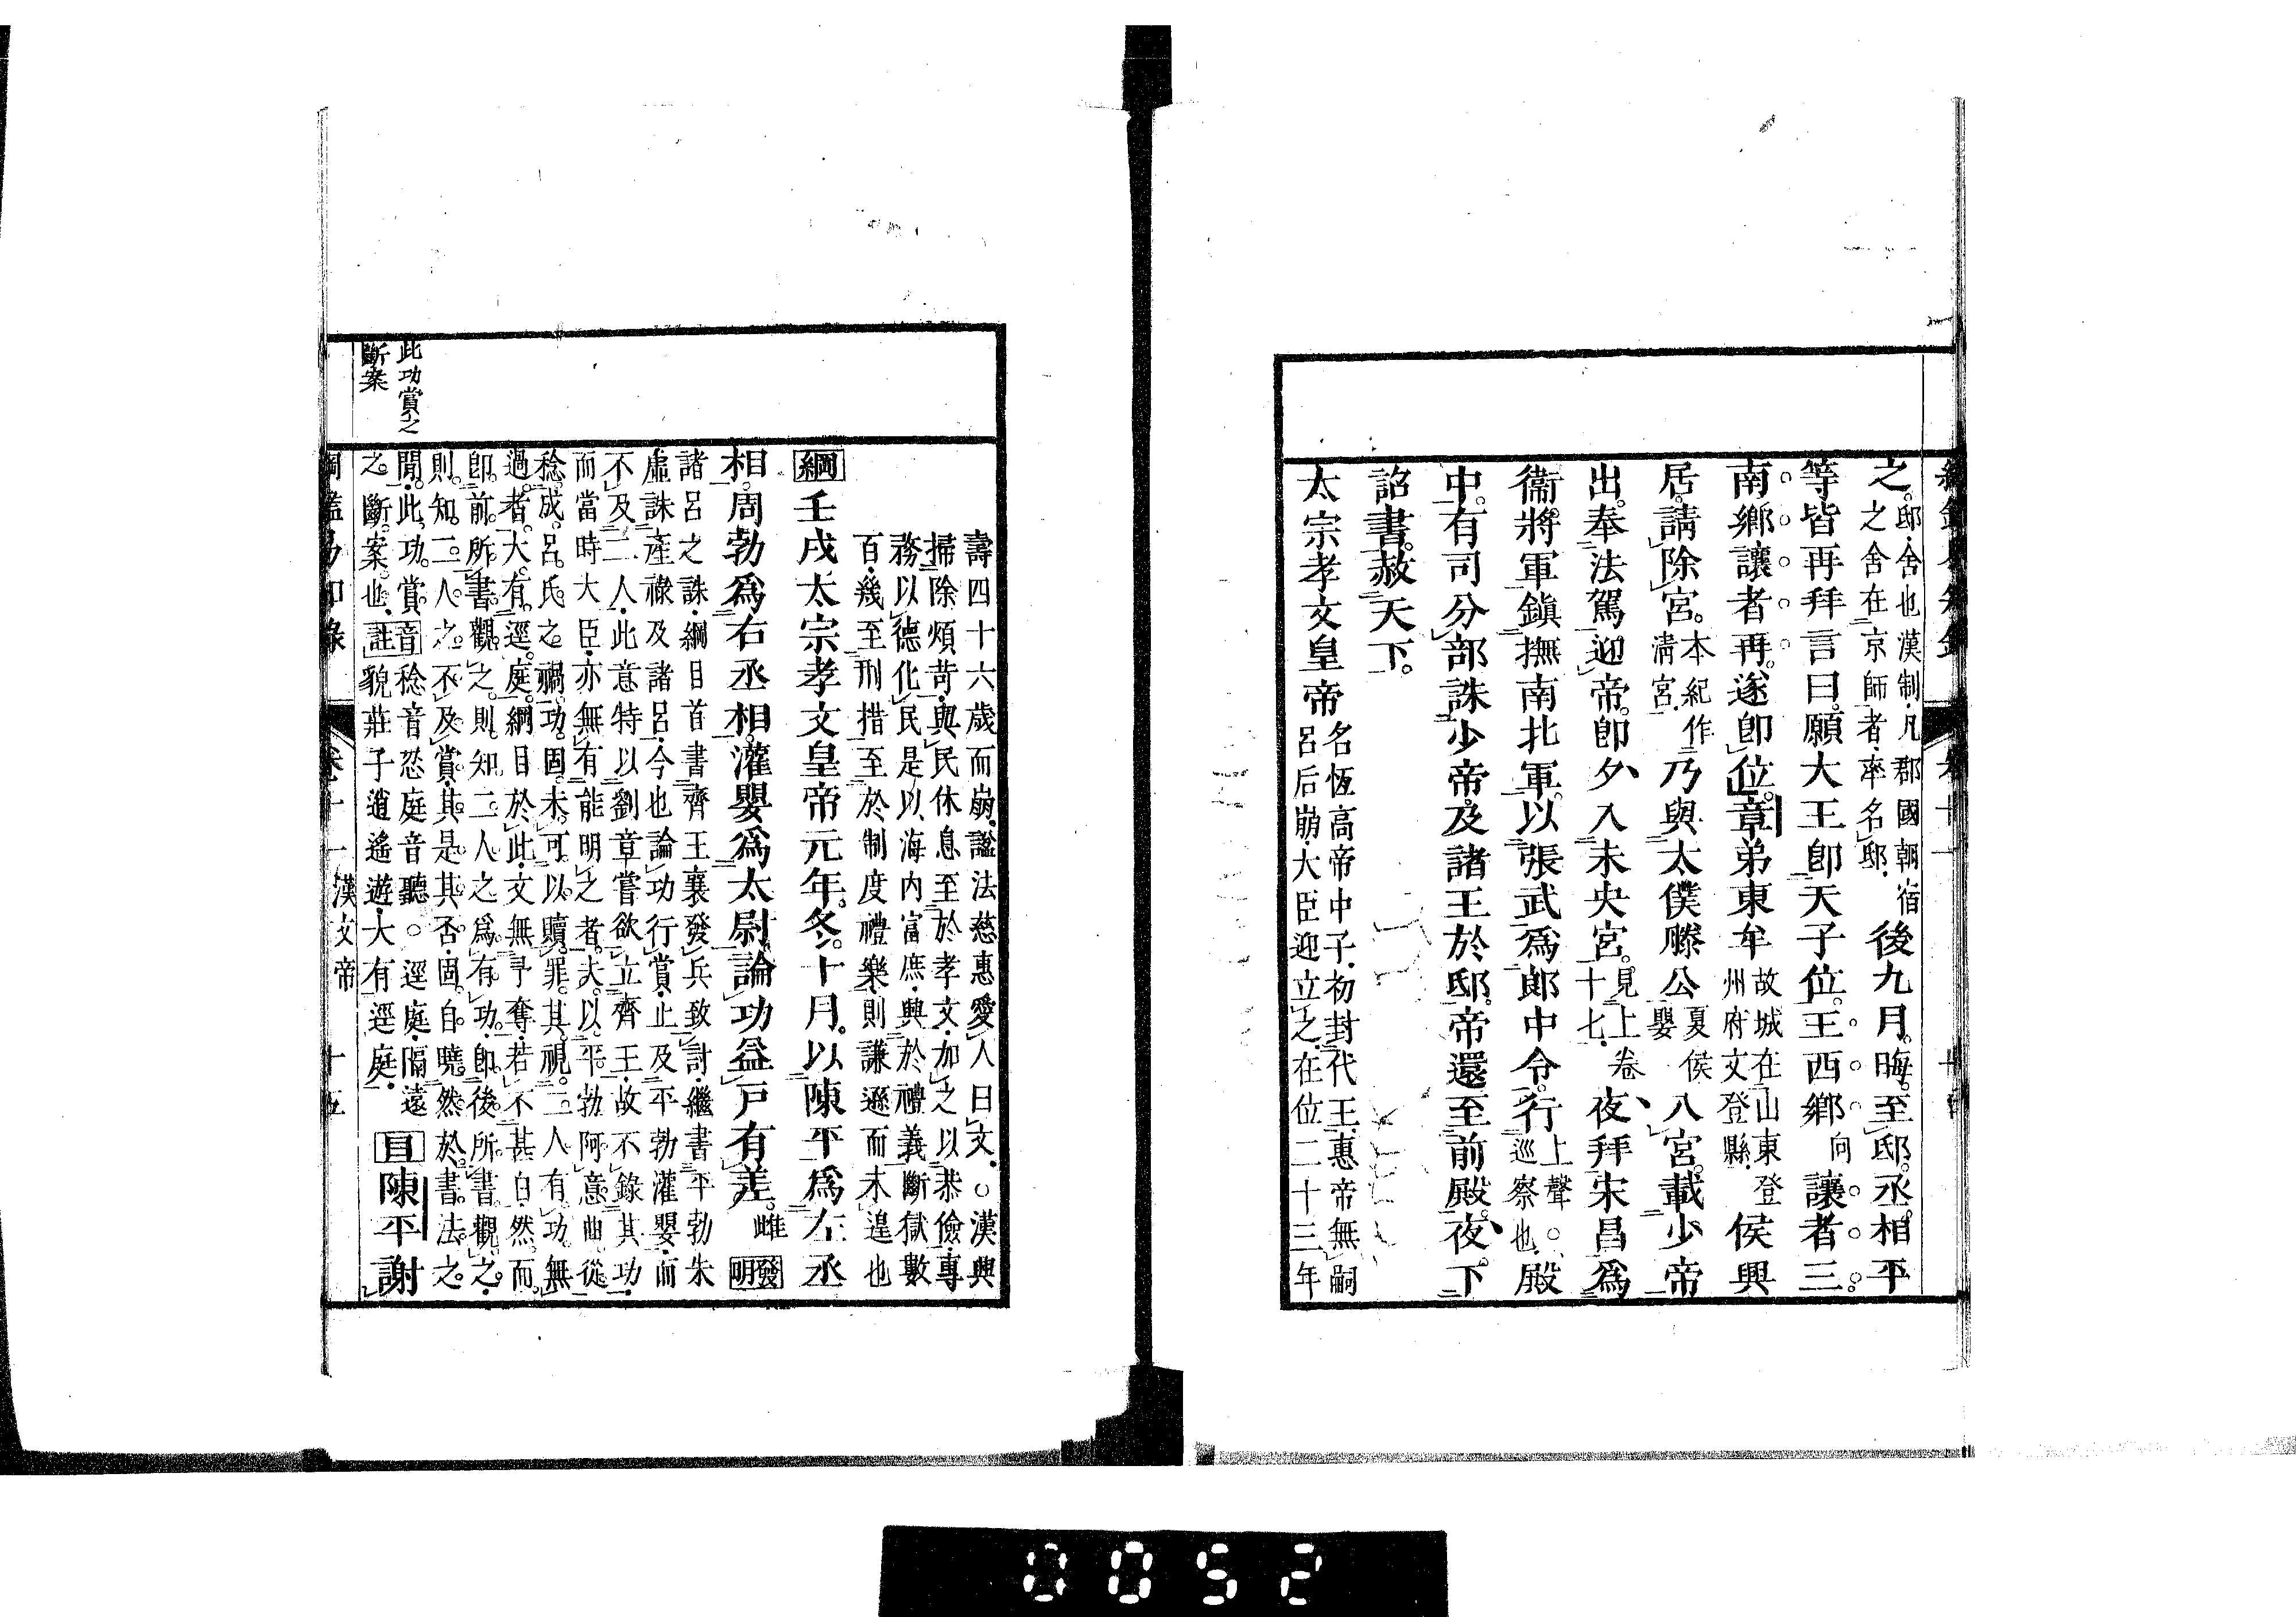 之。邸、舍也、漢制、凡郡國朝宿之舍在京師者、率名邸、後九月。晦。至邸。丞相平
等皆再拜言曰。願大王卽天子位。王西鄉向讓者三。
南鄉讓者再。遂卽位。章弟東牟故城在山東登州府文登縣、侯興
居。請除宮。本紀作淸宮、乃與太僕滕公夏侯嬰入宮。載少帝
出。奉法駕迎帝。卽夕入未央宮。見上卷十七、夜拜宋昌爲
衞將軍鎭撫南北軍。以張武爲郞中令。行上聲○巡察也、殿
中。有司分部誅少帝。及諸王於邸。帝還至前殿。夜。下
詔書。赦天下。
太宗孝文皇帝名恆高帝中子、初封代王、惠帝無嗣呂后崩、大臣迎立之、在位二十三年
壽四十六歲而崩、諡法慈惠愛人曰文、○漢興
掃除煩苛、與民休息、至於孝文、加之以恭儉、專
務以德化民、是以海內富庶、興於禮義、斷獄數
百、幾至刑措、至於制度禮樂、則謙遜而未遑也
綱壬戌太宗孝文皇帝元年。冬。十月。以陳平爲左丞
相。周勃爲右丞相。灌嬰爲太尉。論功益戶有差。雌 發明
諸呂之誅、綱目首書齊王襄發兵致討、繼書平勃朱
虛誅產祿及諸呂、今也論功行賞、止及平勃灌嬰、而
不及二人、此意特以劉章嘗欲立齊王、故不錄其功、
而當時大臣、亦無有能明之者。夫以平勃阿意曲從、
稔成呂氏之禍。功固未可以贖罪。其視二人有功無
過者。大有逕庭。綱目於此、文無予奪、若不甚白、然而
卽前所書觀之。則知二人之爲有功。卽後所書觀之、
則知二人之不及賞。其是其否、固自曉然於書法之
閒、此功賞之斷案也、音稔音忍庭音聽○逕庭、隔遠
註貌莊子逍遙遊、大有逕庭、目陳平謝
此功賞之
斷案
綱鑑易知錄 卷十一 漢文帝 十五